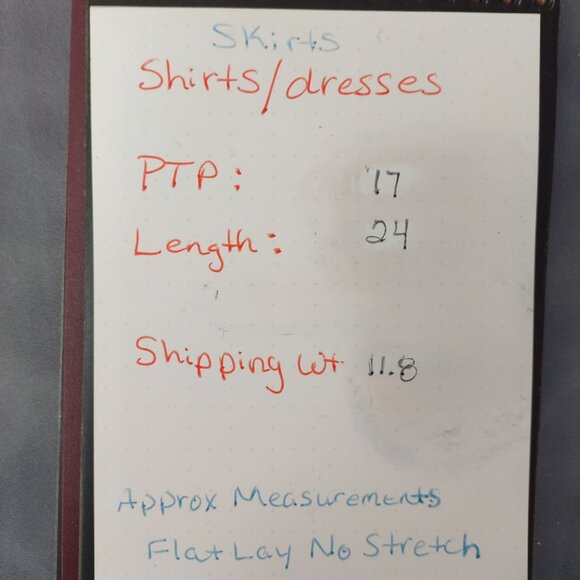 Skirts
Shirts/dresses
PTP: 17
Length: 24
Shipping Wt 11.8
Approx Measurements
Flat Lay No Stretch